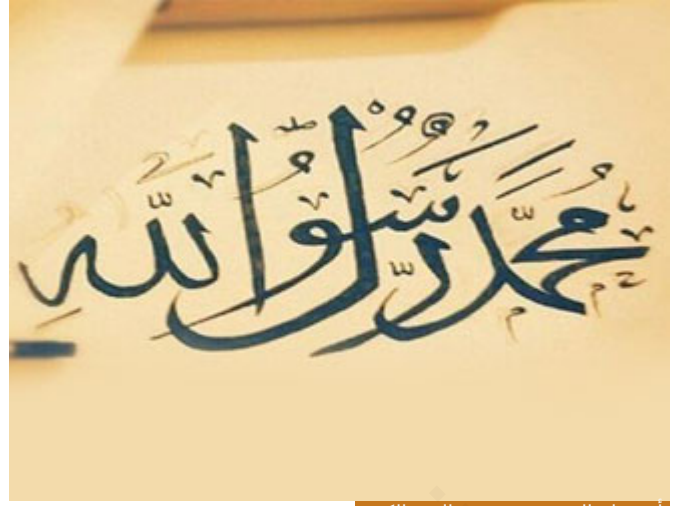 مُحَمَّدٌ رَّسُوْلُ اللّٰهِ